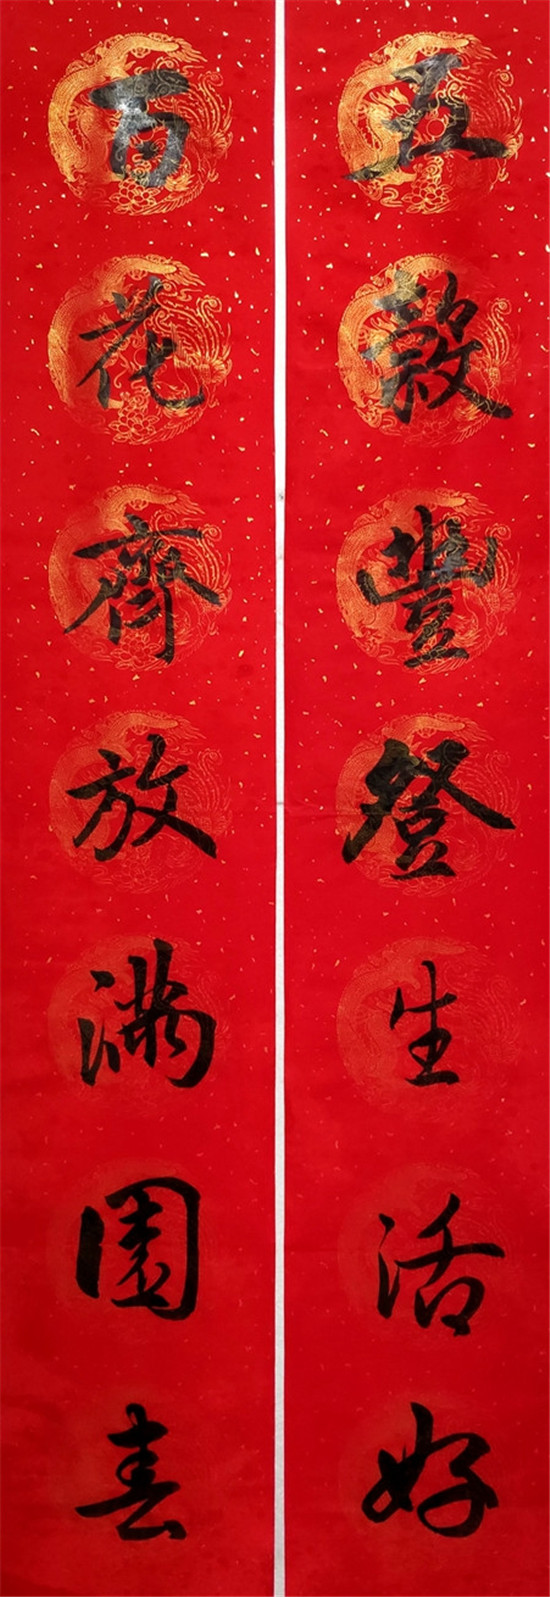 五穀豐登生活好
百花齊放滿園春